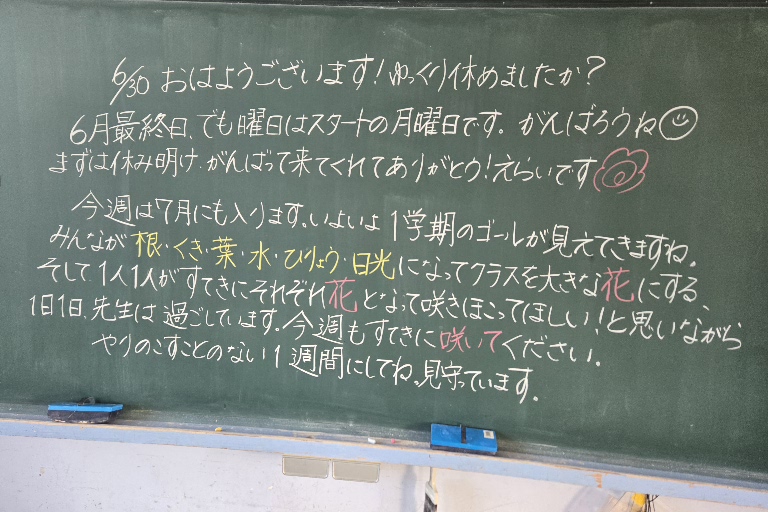 6/30 おはようございます！ゆっくり休めましたか？
6月最終日、でも曜日はスタートの月曜日です。がんばろうね
まずは休み明け、がんばって来てくれてありがとう！えらいです
今週は7月にも入ります。いよいよ1学期のゴールが見えてきますね。
みんなが根・くき・葉・水・ひりょう・日光になってクラスを大きな花にする、
そして1人1人がすてきにそれぞれ花となって咲きほこってほしい！と思いながら
1日1日、先生は過ごしています。今週もすてきに咲いてください。
やりのこすことのない1週間にしてね。見守っています。